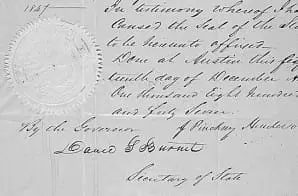 1847
In testimony whereof I ha
Caused the Seal of the Sta
to be hereunto affixed
Done at Austin this fif
teenth day of December A
One thousand Eight Hundred
and forty Seven
By the Governor J Pinckney Henderso
David G Burnet
Secretary of State